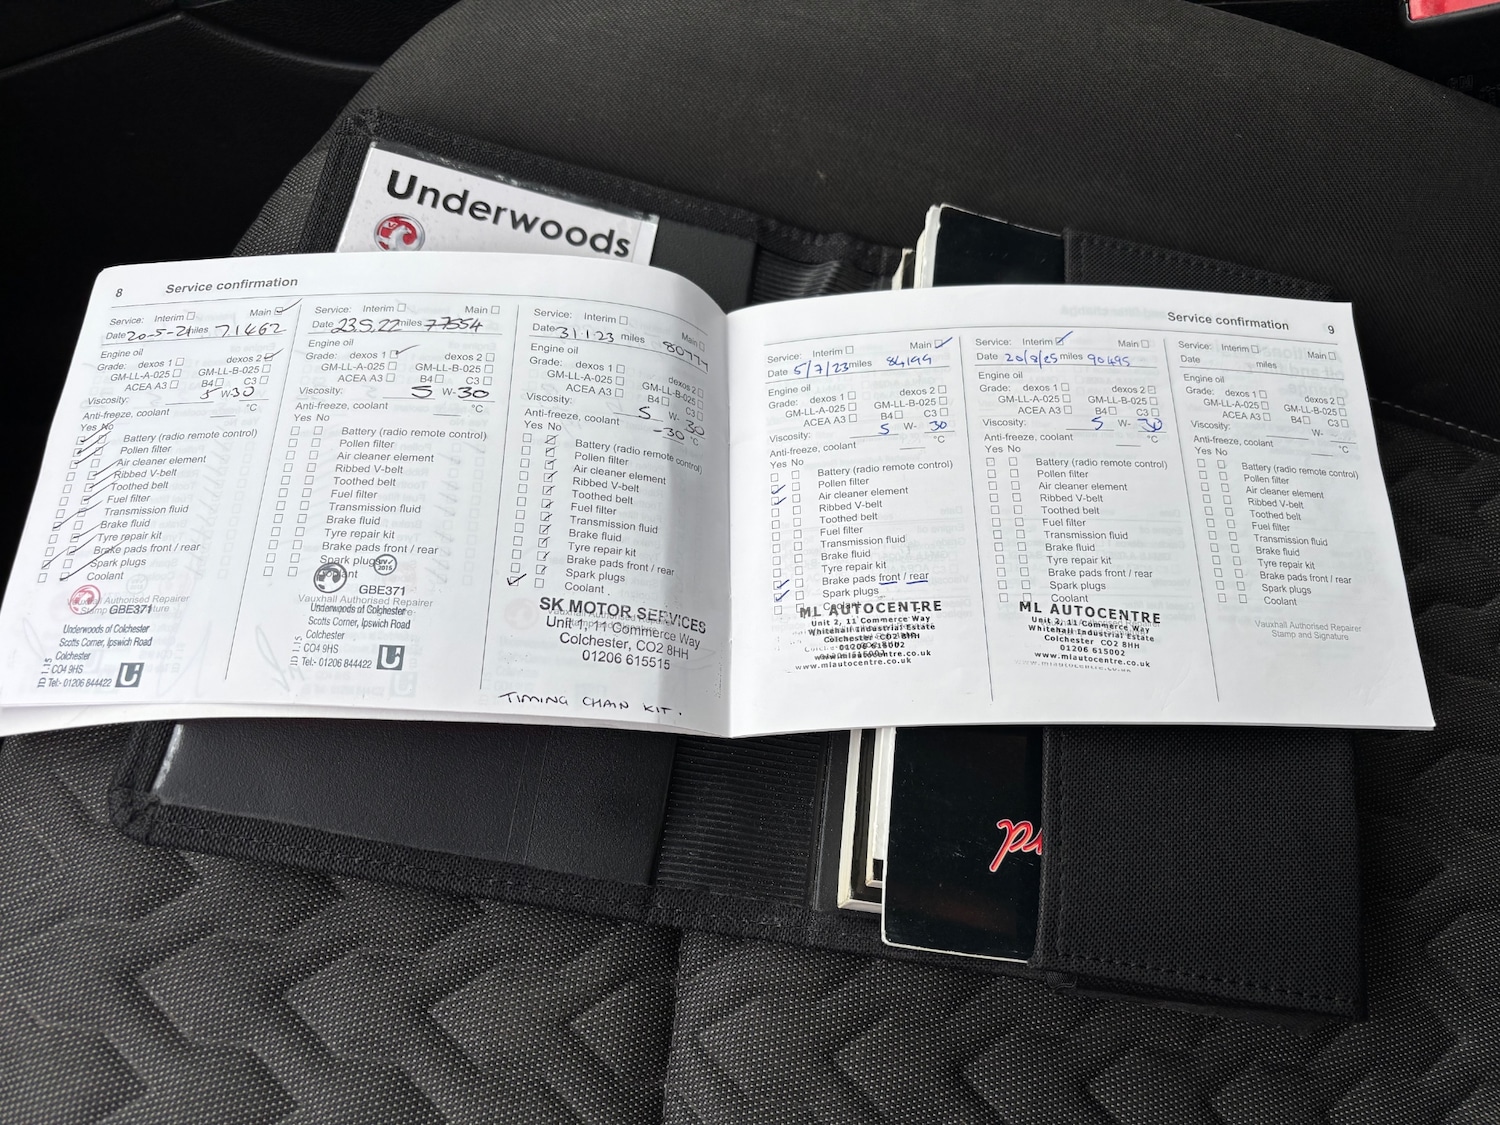 Underwoods
8 Service confirmation
Service: Interim ☐ Main ☑
Date 20-5-21 miles 71462
Engine oil
Grade: dexos 1 ☐ dexos 2 ☑
GM-LL-A-025 ☐ GM-LL-B-025 ☐
ACEA A3 ☐ B4 ☐ C3 ☐
Viscosity: 5 W-30
Anti-freeze, coolant °C
Yes No
Battery (radio remote control)
Pollen filter
Air cleaner element
Ribbed V-belt
Toothed belt
Fuel filter
Transmission fluid
Brake fluid
Tyre repair kit
Brake pads front / rear
Spark plugs
Coolant
GBE371
Vauxhall Authorised Repairer
Underwoods of Colchester
Scotts Corner, Ipswich Road
Colchester
CO4 9HS
Tel:- 01206 844422
Service: Interim ☑ Main ☐
Date 23.5.22 miles 77554
Engine oil
Grade: dexos 1 ☑ dexos 2 ☐
GM-LL-A-025 ☐ GM-LL-B-025 ☐
ACEA A3 ☐ B4 ☐ C3 ☐
Viscosity: 5 W-30
Anti-freeze, coolant °C
Yes No
Battery (radio remote control)
Pollen filter
Air cleaner element
Ribbed V-belt
Toothed belt
Fuel filter
Transmission fluid
Brake fluid
Tyre repair kit
Brake pads front / rear
Spark plugs
GBE371
Vauxhall Authorised Repairer
Underwoods of Colchester
Scotts Corner, Ipswich Road
Colchester
CO4 9HS
Tel:- 01206 844422
Service: Interim ☐ Main ☐
Date 31.1.23 miles
Engine oil
Grade: dexos 1 ☐ dexos 2 ☐
GM-LL-A-025 ☐ GM-LL-B-025 ☐
ACEA A3 ☐ B4 ☐ C3 ☐
Viscosity: 5 W- 30
Anti-freeze, coolant -30 °C
Yes No
Battery (radio remote control)
Pollen filter
Air cleaner element
Ribbed V-belt
Toothed belt
Fuel filter
Transmission fluid
Brake fluid
Tyre repair kit
Brake pads front / rear
Spark plugs
Coolant
SK MOTOR SERVICES
Unit 1, 11 Commerce Way
Colchester, CO2 8HH
01206 615515
TIMING CHAIN KIT.
Service confirmation 9
Service: Interim ☐ Main ☑
Date 5/7/23 miles 84,199
Engine oil
Grade: dexos 1 ☐ dexos 2 ☐
GM-LL-A-025 ☐ GM-LL-B-025 ☐
ACEA A3 ☐ B4 ☐ C3 ☐
Viscosity: 5 W- 30
Anti-freeze, coolant °C
Yes No
Battery (radio remote control)
Pollen filter
Air cleaner element
Ribbed V-belt
Toothed belt
Fuel filter
Transmission fluid
Brake fluid
Tyre repair kit
Brake pads front / rear
Spark plugs
Coolant
ML AUTOCENTRE
Unit 2, 11 Commerce Way
Whitehall Industrial Estate
Colchester CO2 8HH
01206 615002
www.mlautocentre.co.uk
Service: Interim ☑ Main ☐
Date 20/8/25 miles 90495
Engine oil
Grade: dexos 1 ☐ dexos 2 ☐
GM-LL-A-025 ☐ GM-LL-B-025 ☐
ACEA A3 ☐ B4 ☐ C3 ☐
Viscosity: 5 W- 30
Anti-freeze, coolant °C
Yes No
Battery (radio remote control)
Pollen filter
Air cleaner element
Ribbed V-belt
Toothed belt
Fuel filter
Transmission fluid
Brake fluid
Tyre repair kit
Brake pads front / rear
Spark plugs
Coolant
ML AUTOCENTRE
Unit 2, 11 Commerce Way
Whitehall Industrial Estate
Colchester CO2 8HH
01206 615002
www.mlautocentre.co.uk
Service: Interim ☐ Main ☐
Date miles
Engine oil
Grade: dexos 1 ☐ dexos 2 ☐
GM-LL-A-025 ☐ GM-LL-B-025 ☐
ACEA A3 ☐ B4 ☐ C3 ☐
Viscosity: W-
Anti-freeze, coolant °C
Yes No
Battery (radio remote control)
Pollen filter
Air cleaner element
Ribbed V-belt
Toothed belt
Fuel filter
Transmission fluid
Brake fluid
Tyre repair kit
Brake pads front / rear
Spark plugs
Coolant
Vauxhall Authorised Repairer
Stamp and Signature